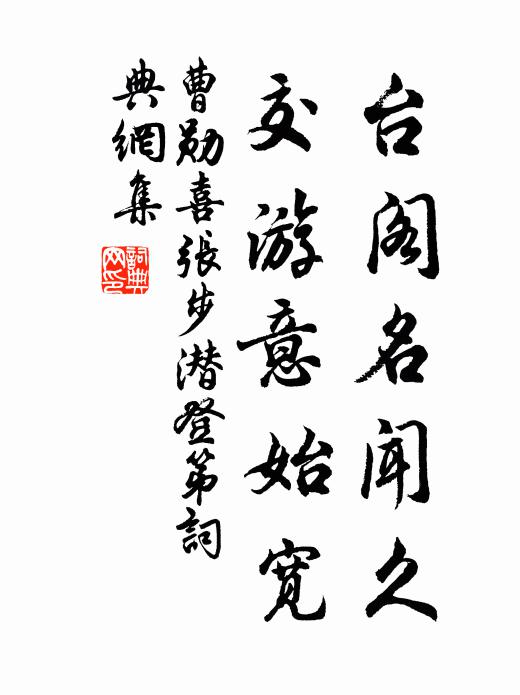 台阁名闻久
交游意始宽
曹勋喜張步潜登第詞
典網集
詞典
网印